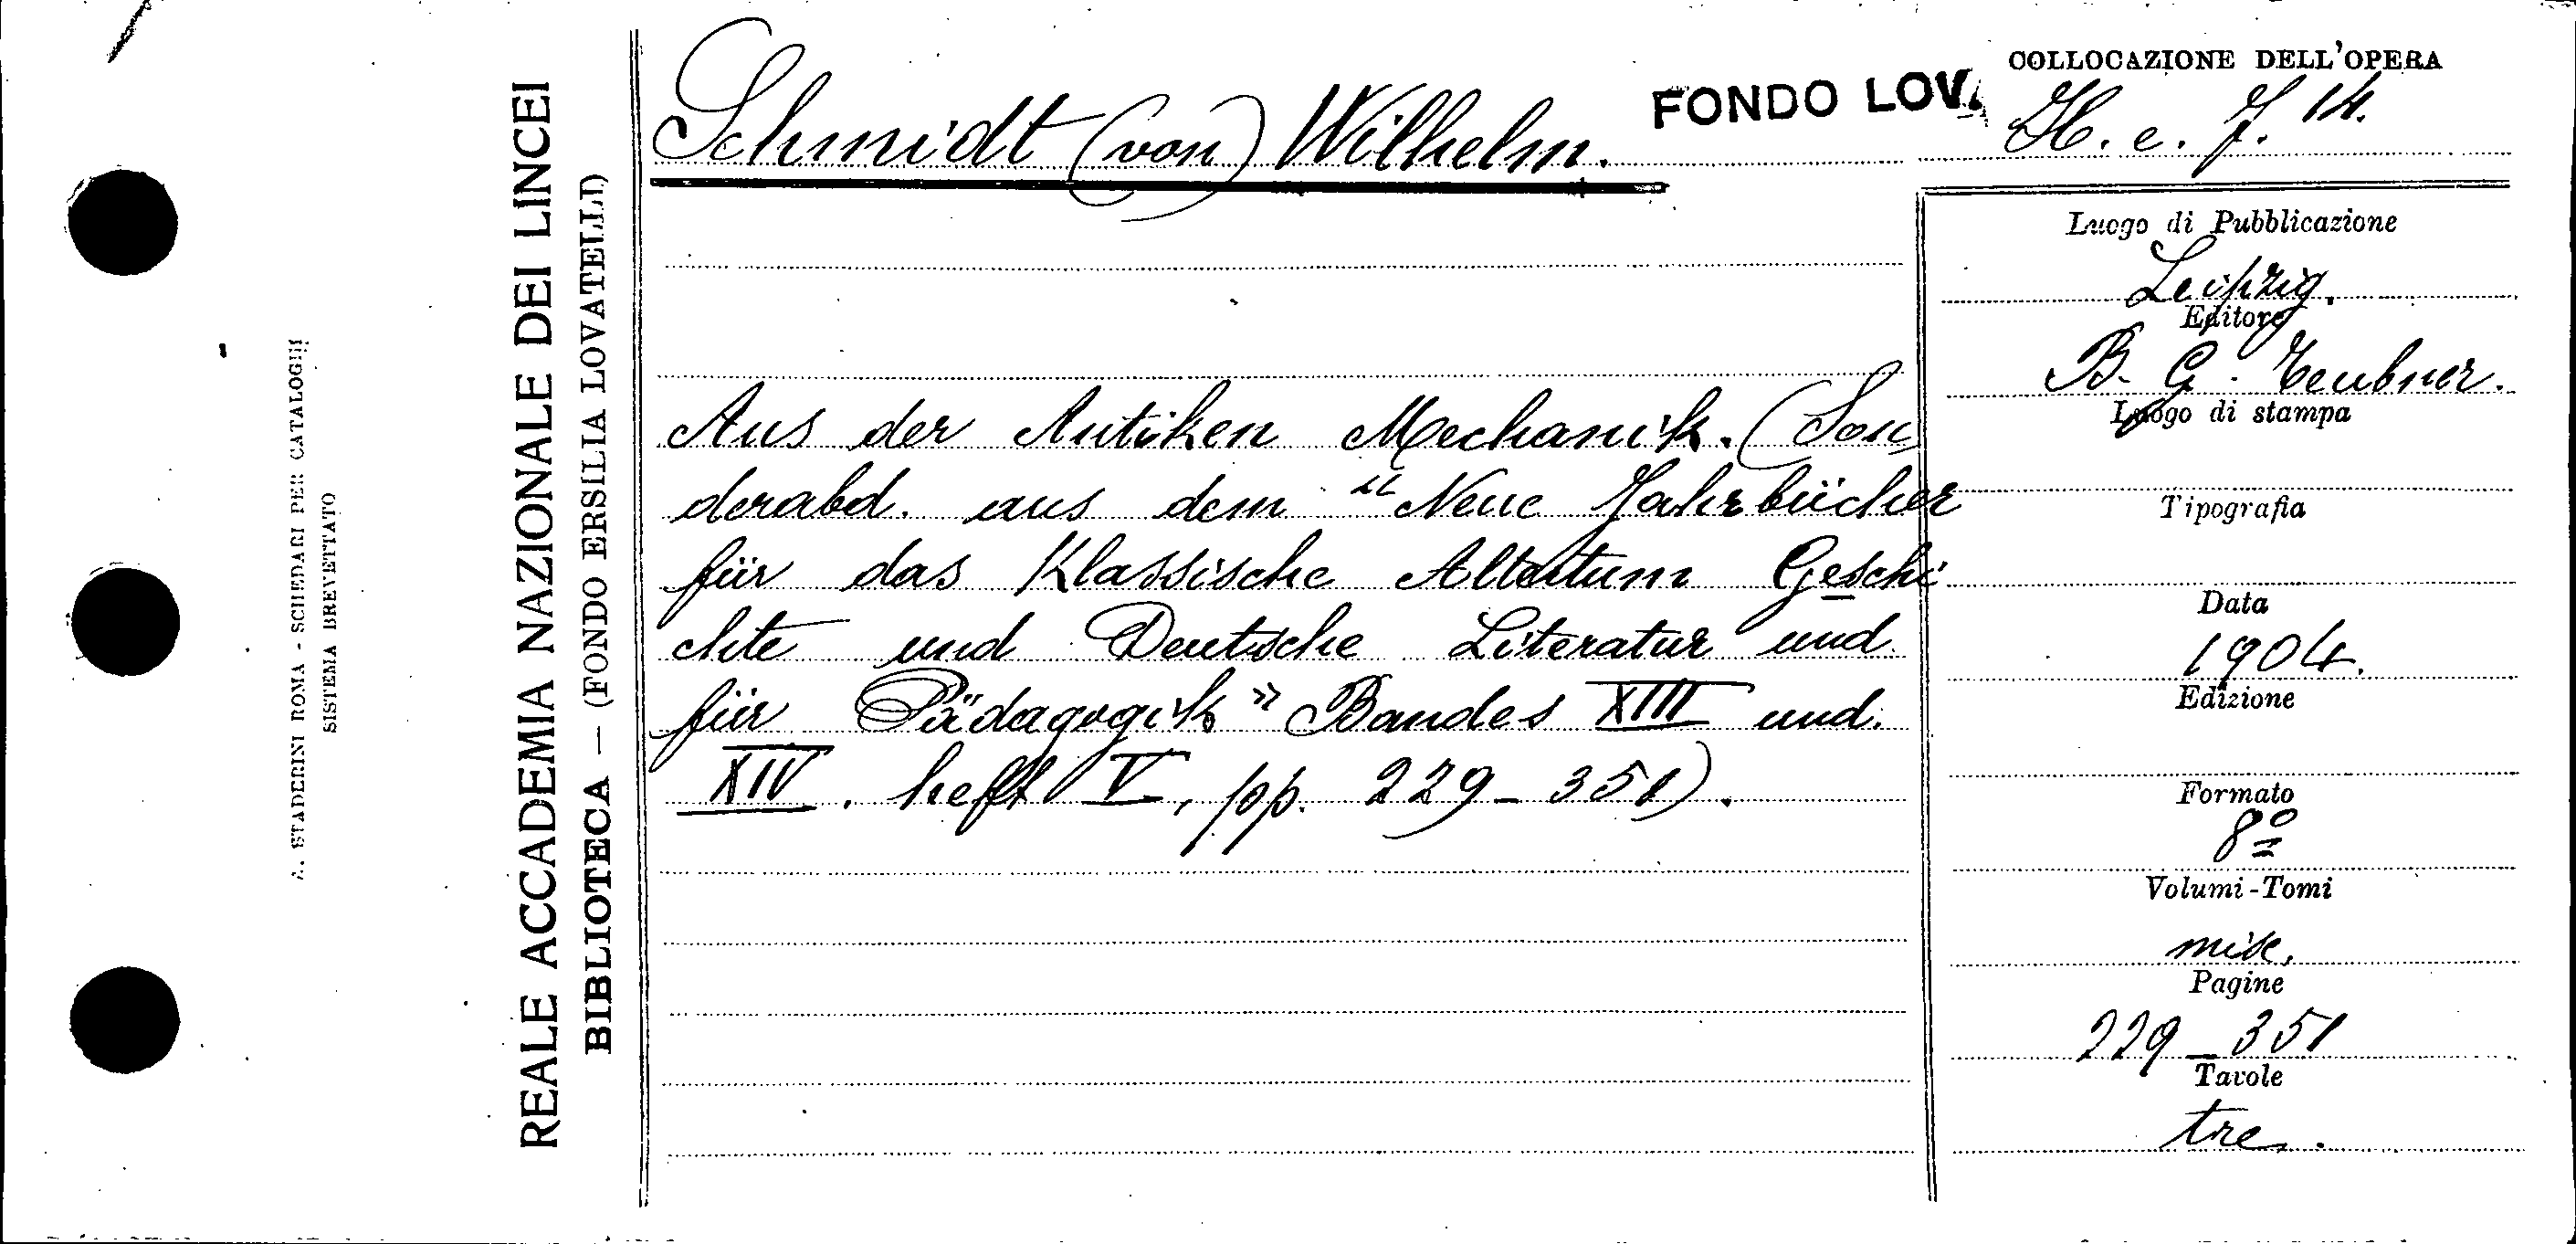 A. STADERINI ROMA - SCHEDARI PER CATALOGHI
SISTEMA BREVETTATO
REALE ACCADEMIA NAZIONALE DEI LINCEI
BIBLIOTECA — (FONDO ERSILIA LOVATELLI)
Schmidt (von) Wilhelm.
FONDO LOVA
COLLOCAZIONE DELL'OPERA
H. e. f. 14.
Aus der Antiken Mechanik. (Son
derabd. aus dem "Neue Jahrbücher
für das Klassische Altertum Geschi
chte und Deutsche Literatur und
für Pädagogik" Bandes XIII und
XIV. heft V, pp. 229-351).
Luogo di Pubblicazione
Leipzig.
Editore
B. G. Teubner.
Luogo di stampa
Tipografia
Data
1904.
Edizione
Formato
8º
Volumi-Tomi
misc.
Pagine
229-351
Tavole
tre.